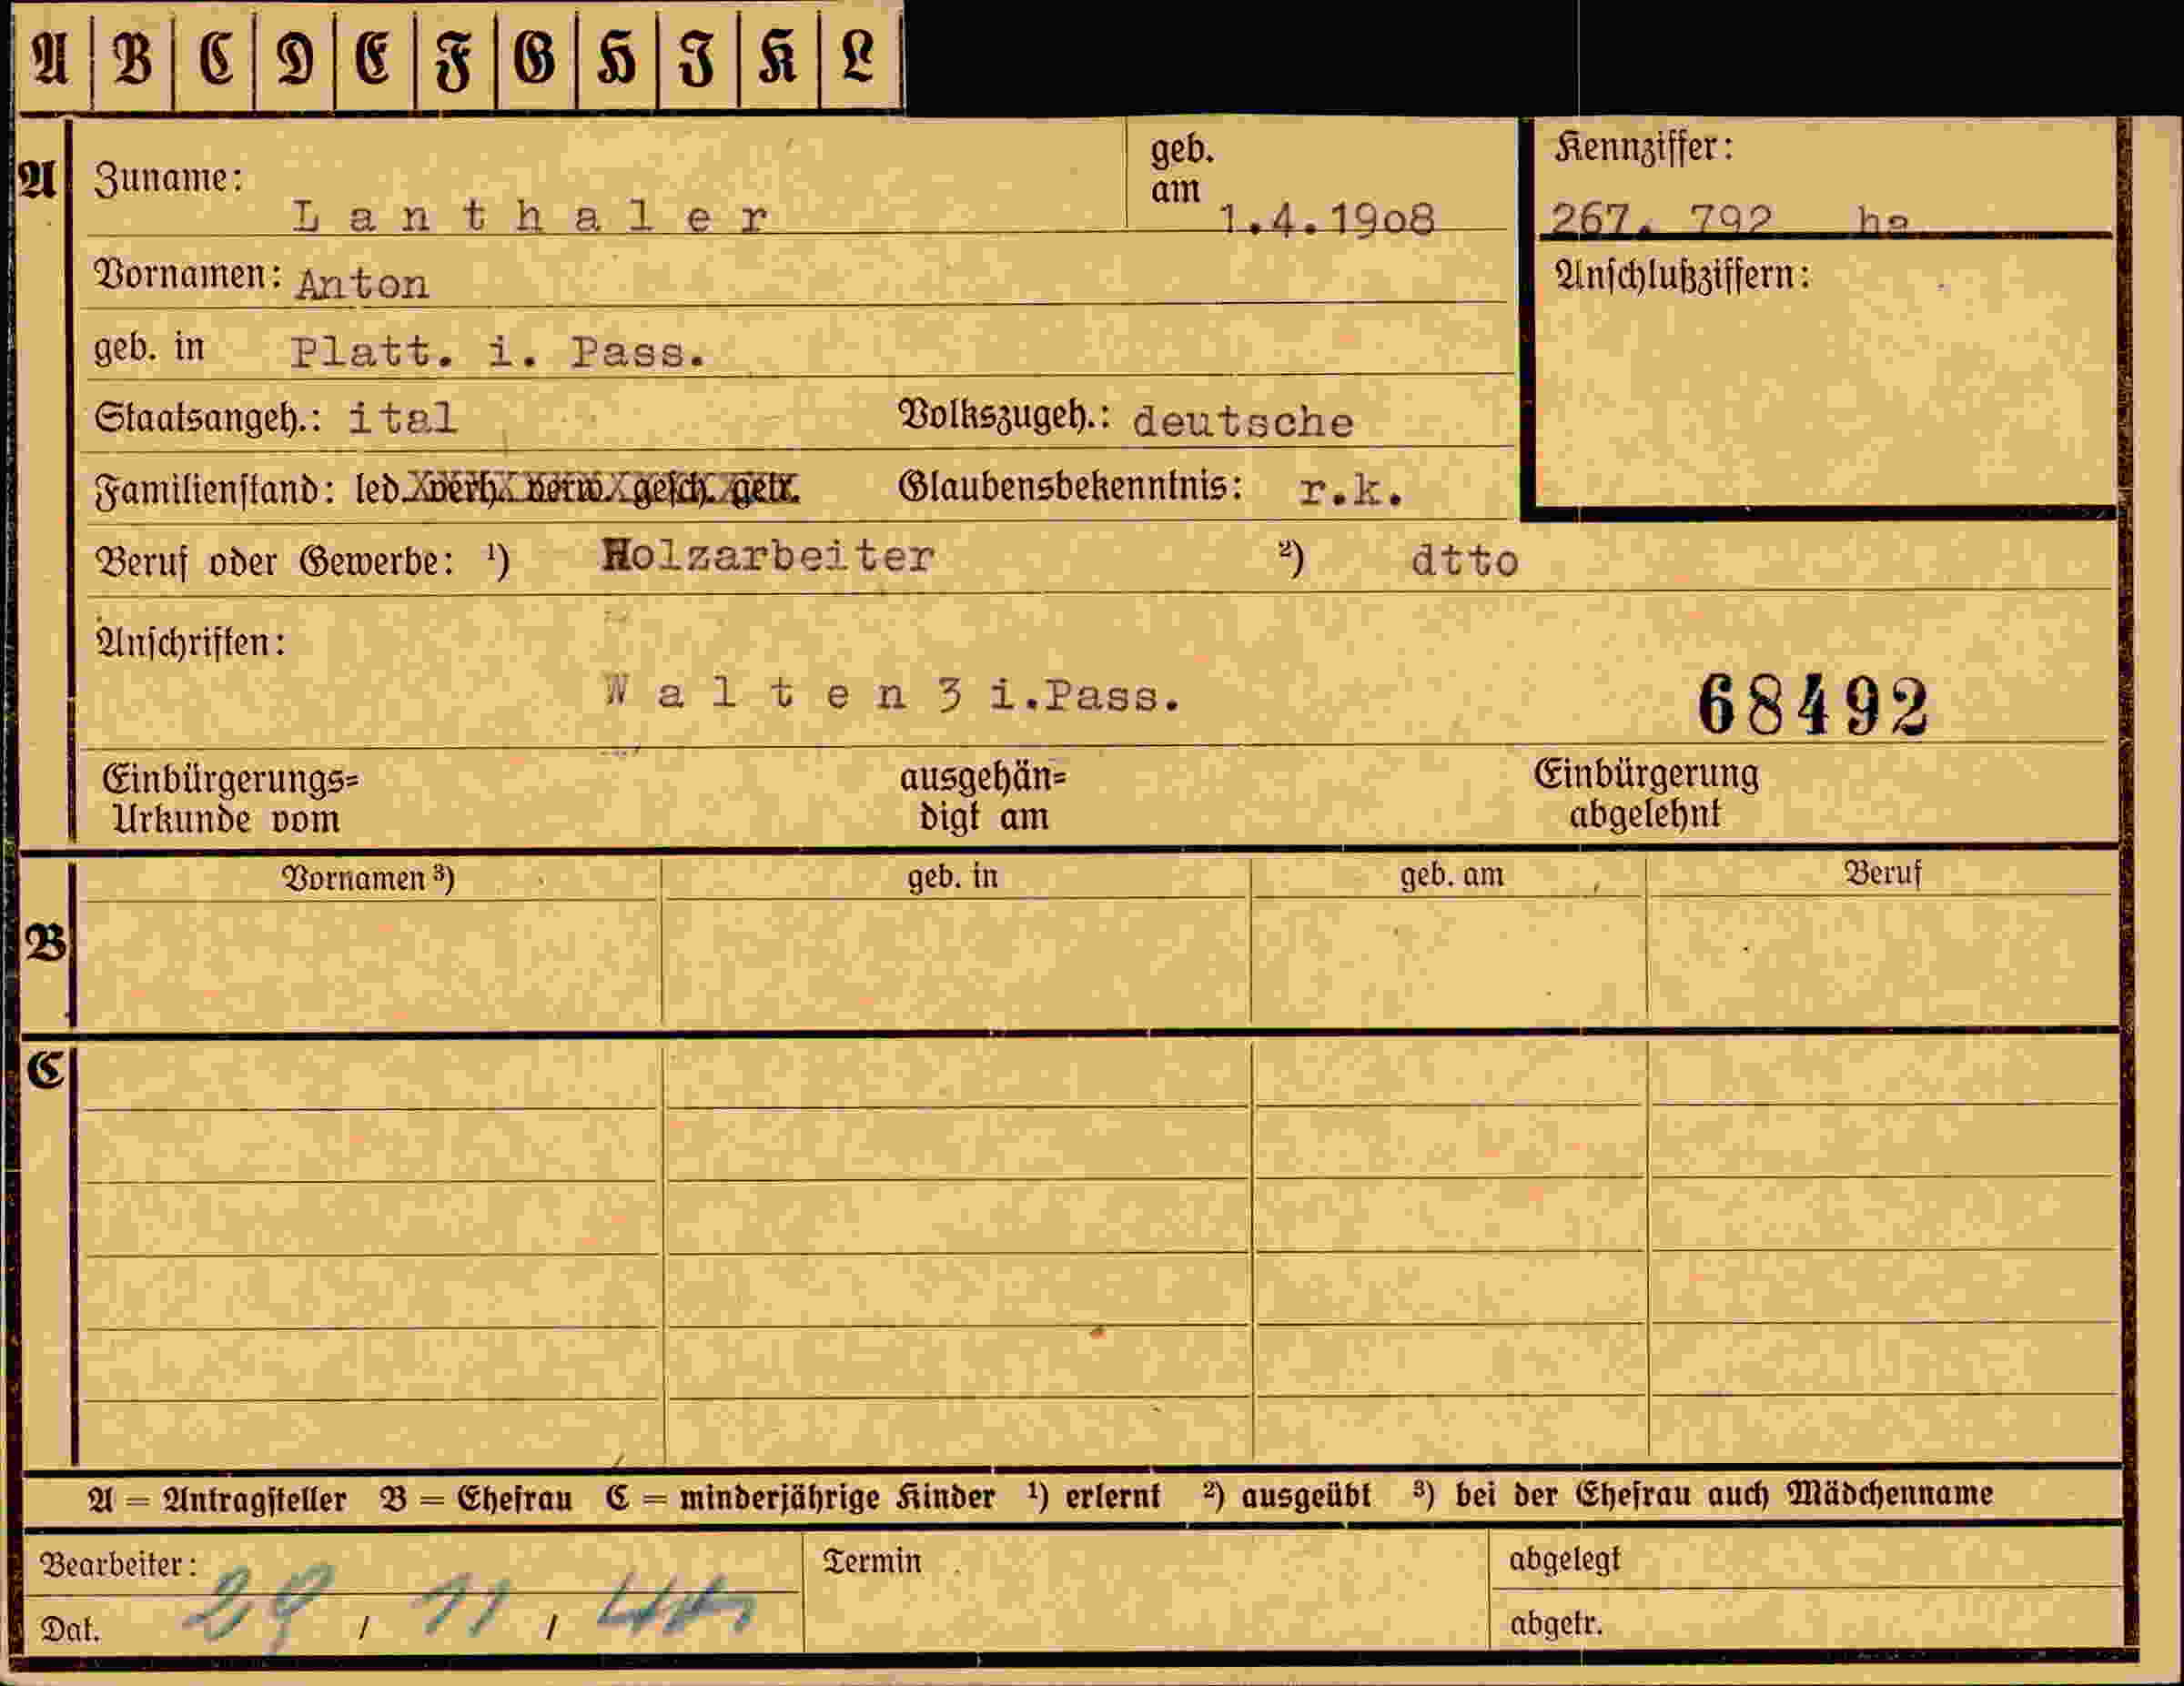 A B C D E F G H I K L
A Zuname: Lanthaler geb. am 1.4.1908 Kennziffer: 267. 792 ha
Vornamen: Anton Anschlußziffern:
geb. in Platt. i. Pass.
Staatsangeh.: ital Volkszugeh.: deutsche
Familienstand: led. verh. verw. gesch. getr. Glaubensbekenntnis: r.k.
Beruf oder Gewerbe: ¹) Holzarbeiter ²) dtto
Anschriften:
Walten 3 i.Pass. 68492
Einbürgerungs= ausgehän= Einbürgerung
Urkunde vom digt am abgelehnt
Vornamen ³) geb. in geb. am Beruf
B
C
A = Antragsteller B = Ehefrau C = minderjährige Kinder ¹) erlernt ²) ausgeübt ³) bei der Ehefrau auch Mädchenname
Bearbeiter: Termin abgelegt
Dat. 29 / 11 / abgetr.